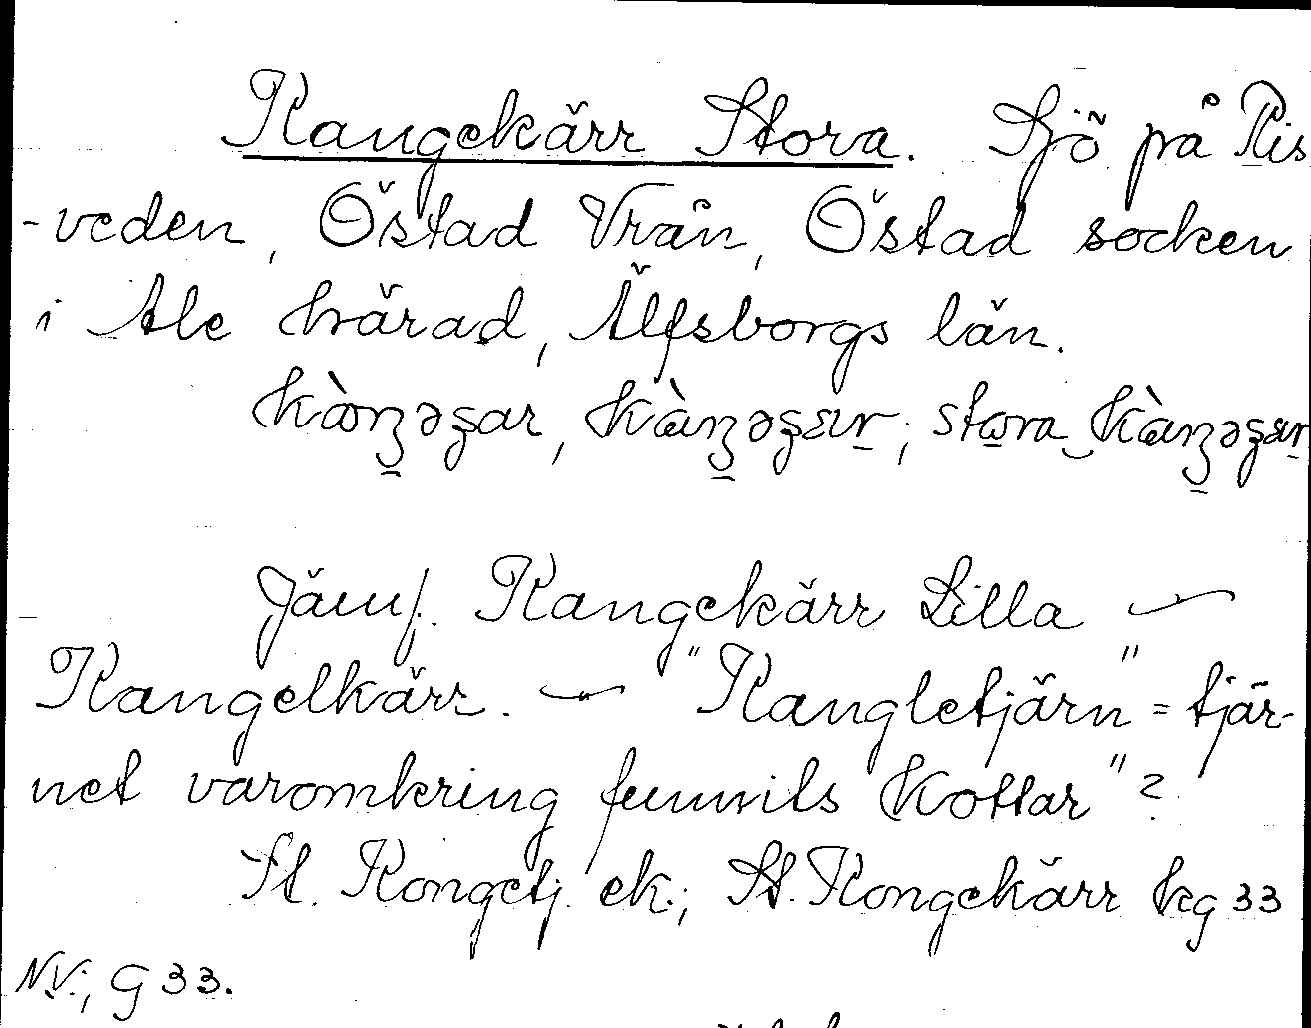 Kangekärr Stora. Sjö på Ris
-veden, Östad Vrån, Östad socken
i Ale härad, Älfsborgs län.
Jämf. Kangekärr Lilla —
Kangelkärr. — "Kangletjärn" = tjär-
net varomkring funnits Kottar"?
St. Kongetj. ek.; St. Kongekärr kg 33
NV.; G 33.